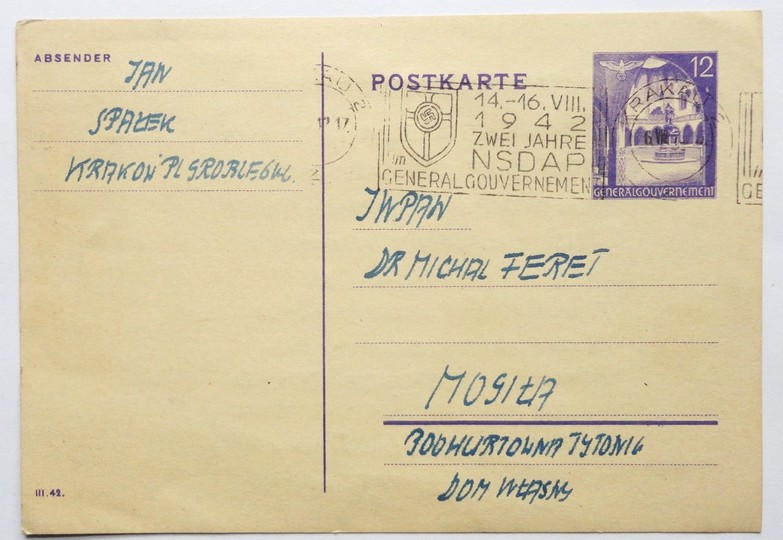 ABSENDER
JAN
SPAŁEK
KRAKOW PL GROBLE
POSTKARTE
14.-16. VIII.
1942
ZWEI JAHRE
im NSDAP
GENERALGOUVERNEMENT
12
KRAKAU
GENERALGOUVERNEMENT
JWPAN
DR MICHAL FERET
MOGIŁA
TYTONIU
DOM WŁASNY
III. 42.